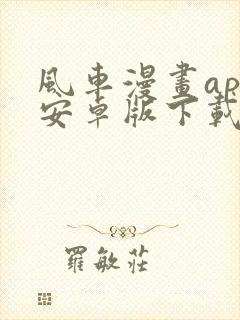 風車漫畫ap
安卓版下載
羅敏莊